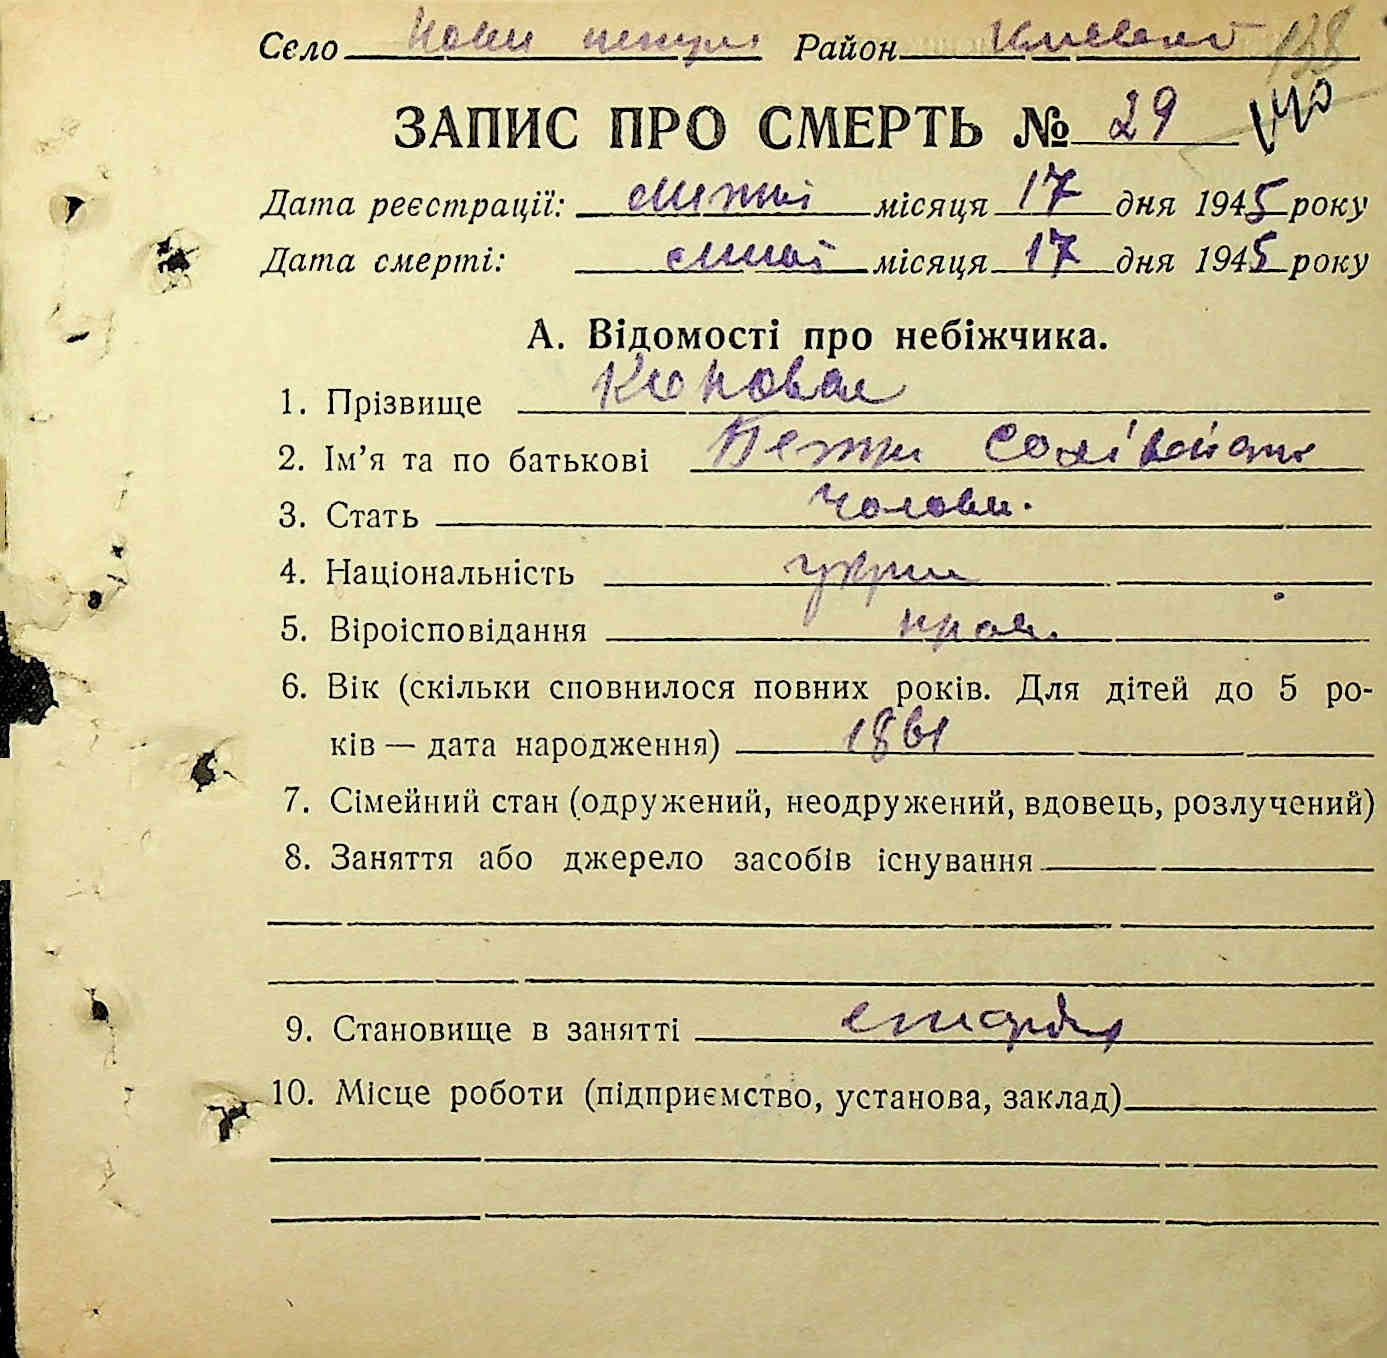 Село Нови петри Район Київській 138
ЗАПИС ПРО СМЕРТЬ № 29 140
Дата реєстрації: місяця 17 дня 1945 року
Дата смерті: місяця 17 дня 1945 року
А. Відомості про небіжчика.
1. Прізвище Коновал
2. Ім’я та по батькові Петро
3. Стать чолови.
4. Національність украи
5. Віроісповідання прав.
6. Вік (скільки сповнилося повних років. Для дітей до 5 ро-
ків — дата народження) 1861
7. Сімейний стан (одружений, неодружений, вдовець, розлучений)
8. Заняття або джерело засобів існування
9. Становище в занятті
10. Місце роботи (підприємство, установа, заклад)